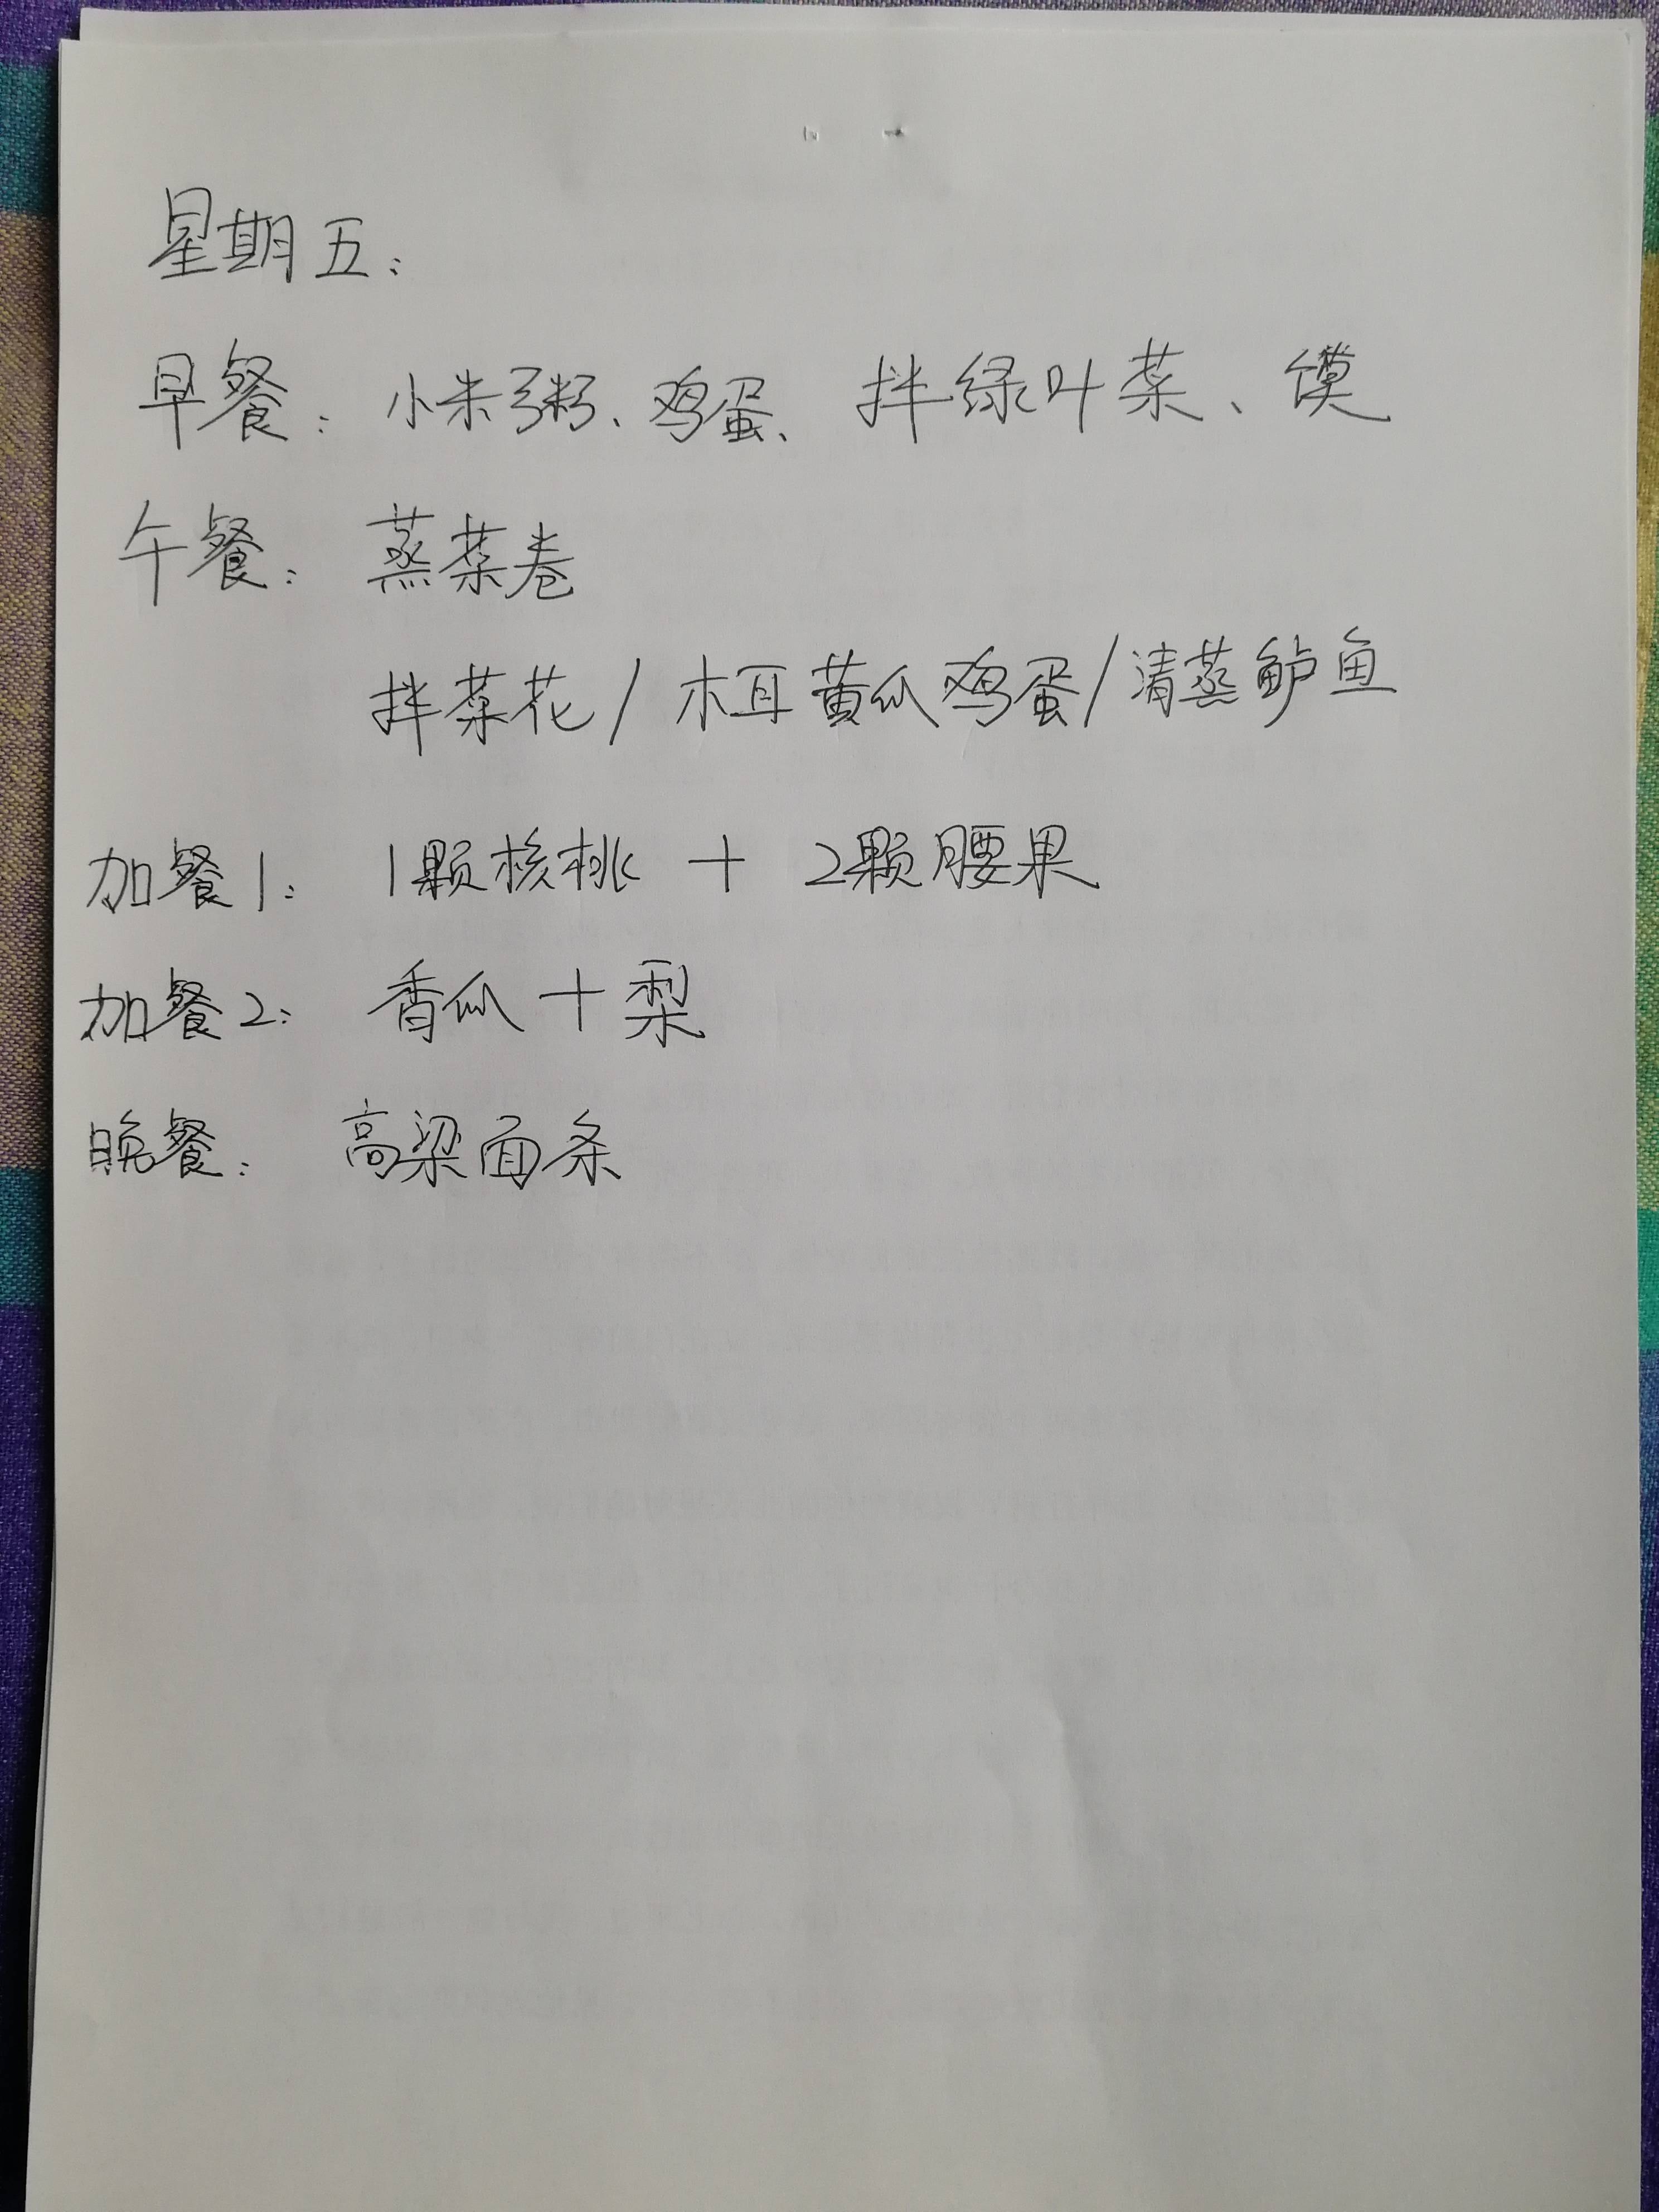 星期五：
早餐：小米粥、鸡蛋、拌绿叶菜、馍
午餐：蒸菜卷
拌菜花/木耳黄瓜鸡蛋/清蒸鲈鱼
加餐1：1颗核桃+2颗腰果
加餐2：香瓜+梨
晚餐：高梁面条